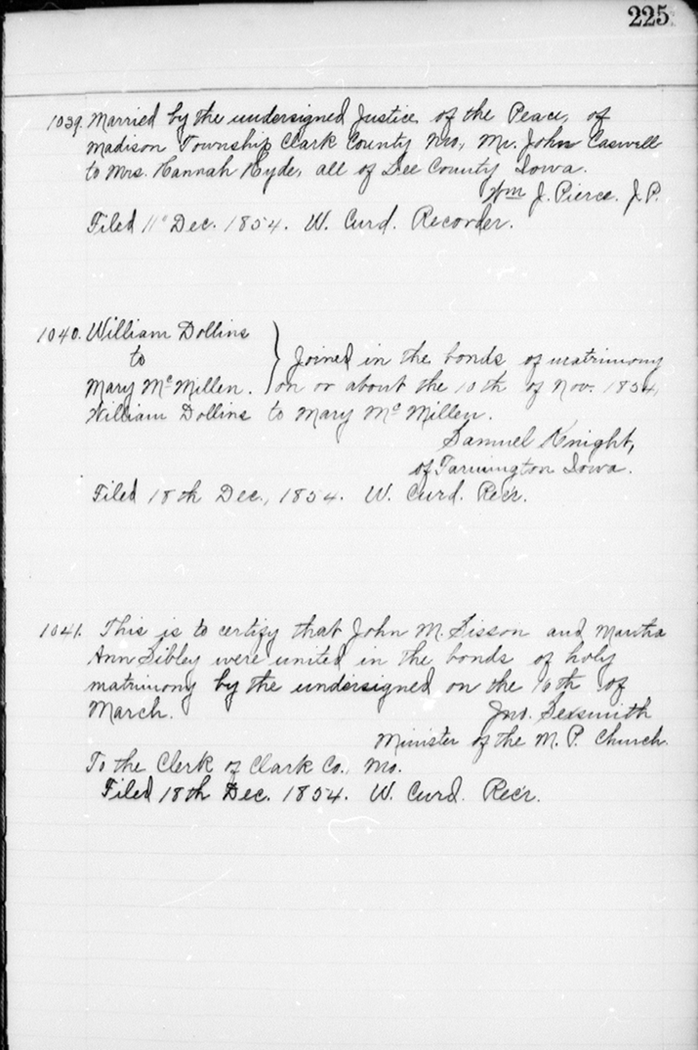 225
1039. Married by the undersigned Justice of the Peace, of
Madison Township Clark County Mo., Mr. John Caswell
to Mrs. Hannah Hyde, all of Lee County Iowa.
Wm J. Pierce. J.P.
Filed 11" Dec. 1854. W. Curd. Recorder.
1040. William Dollins
to } Joined in the bonds of matrimony
Mary McMillen. on or about the 10th of Nov. 1854,
William Dollins to Mary McMillen.
Samuel Knight,
of Farmington Iowa.
Filed 18th Dec., 1854. W. Curd. Rec'r.
1041. This is to certify that John M. Sisson and Martha
Ann Sibley were united in the bonds of holy
matrimony by the undersigned on the 16th of
March. Jno. Sexsmith
Minister of the M. P. Church.
To the Clerk of Clark Co., Mo.
Filed 18th Dec. 1854. W. Curd. Rec'r.